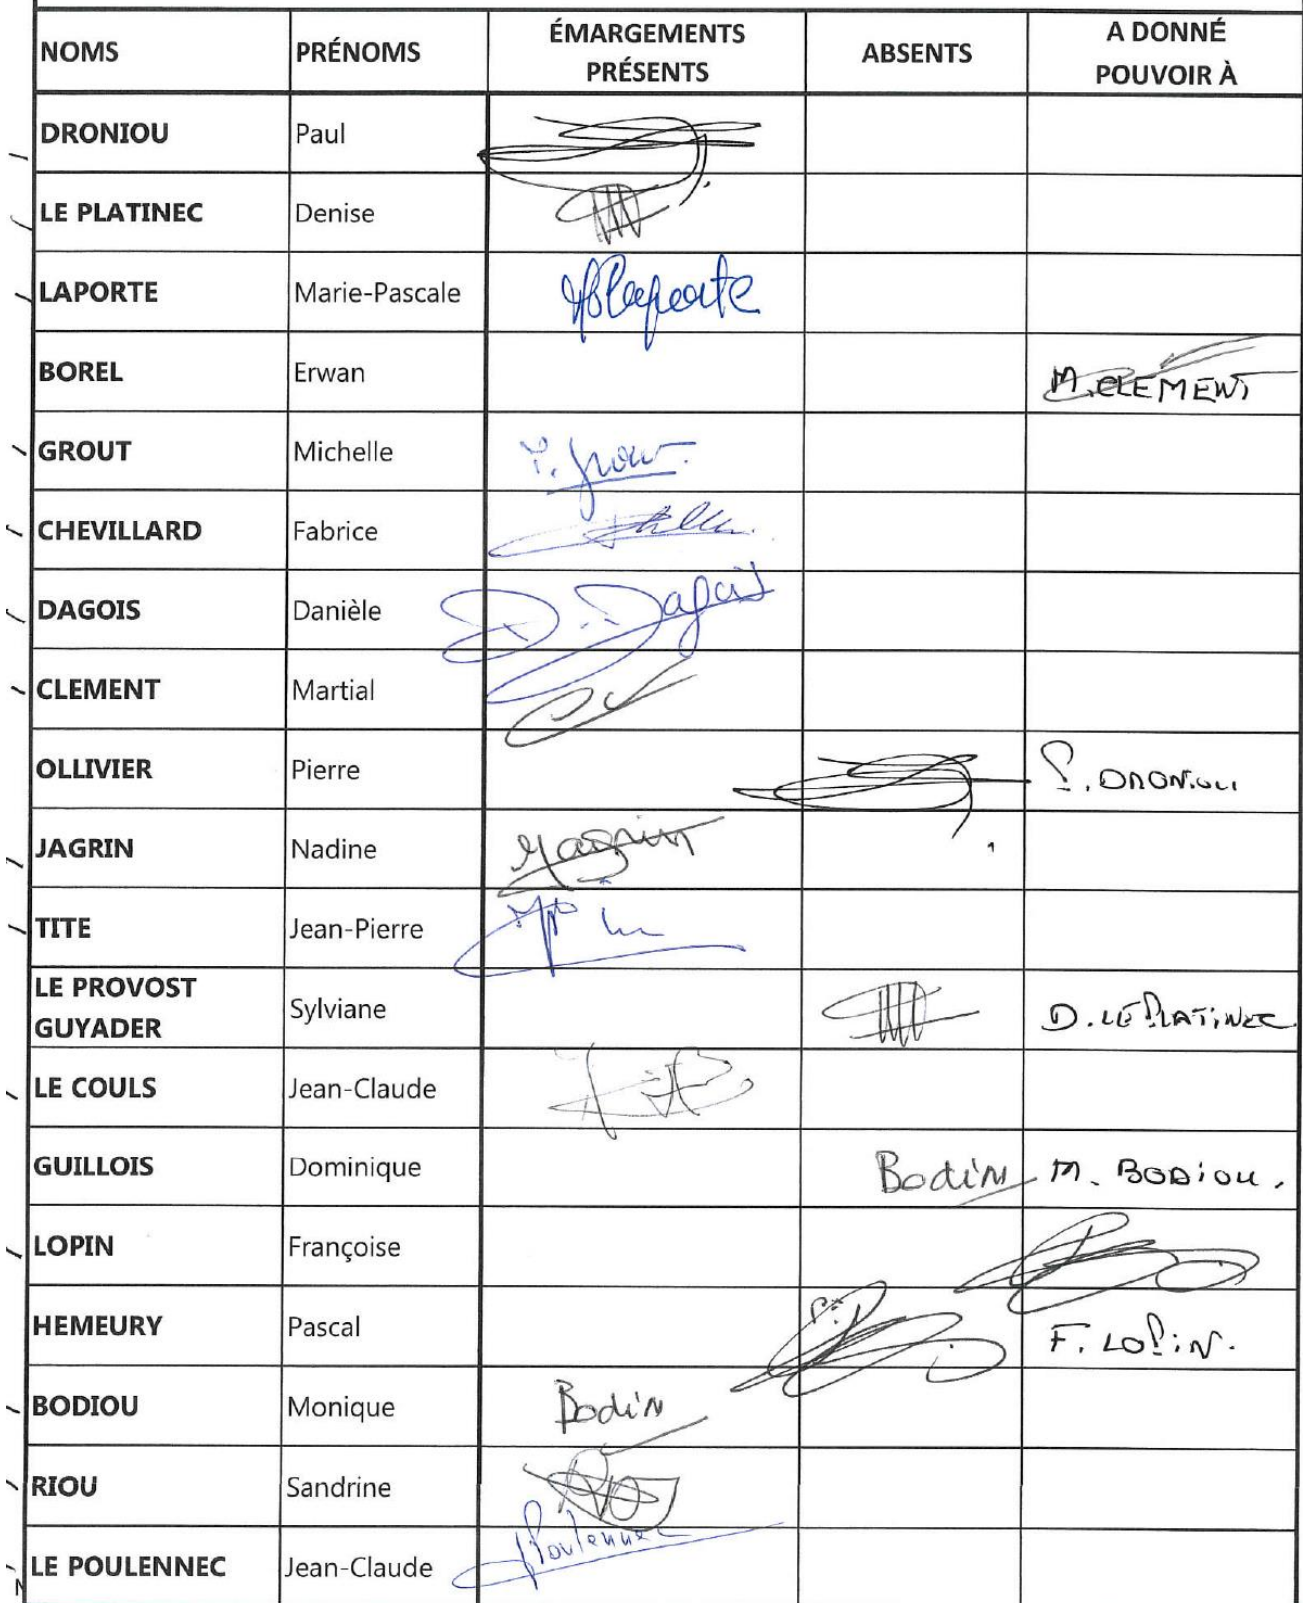 NOMS PRÉNOMS ÉMARGEMENTS PRÉSENTS ABSENTS A DONNÉ POUVOIR À
DRONIOU Paul
LE PLATINEC Denise
LAPORTE Marie-Pascale Laporte
BOREL Erwan M. CLEMENT
GROUT Michelle
CHEVILLARD Fabrice
DAGOIS Danièle D. Dagois
CLEMENT Martial
OLLIVIER Pierre P. DRONIOU
JAGRIN Nadine Jagrin
TITE Jean-Pierre
LE PROVOST GUYADER Sylviane D. LE PLATINEC
LE COULS Jean-Claude
GUILLOIS Dominique M. BODIOU.
LOPIN Françoise
HEMEURY Pascal F. LOPIN.
BODIOU Monique
RIOU Sandrine
LE POULENNEC Jean-Claude Poulennec